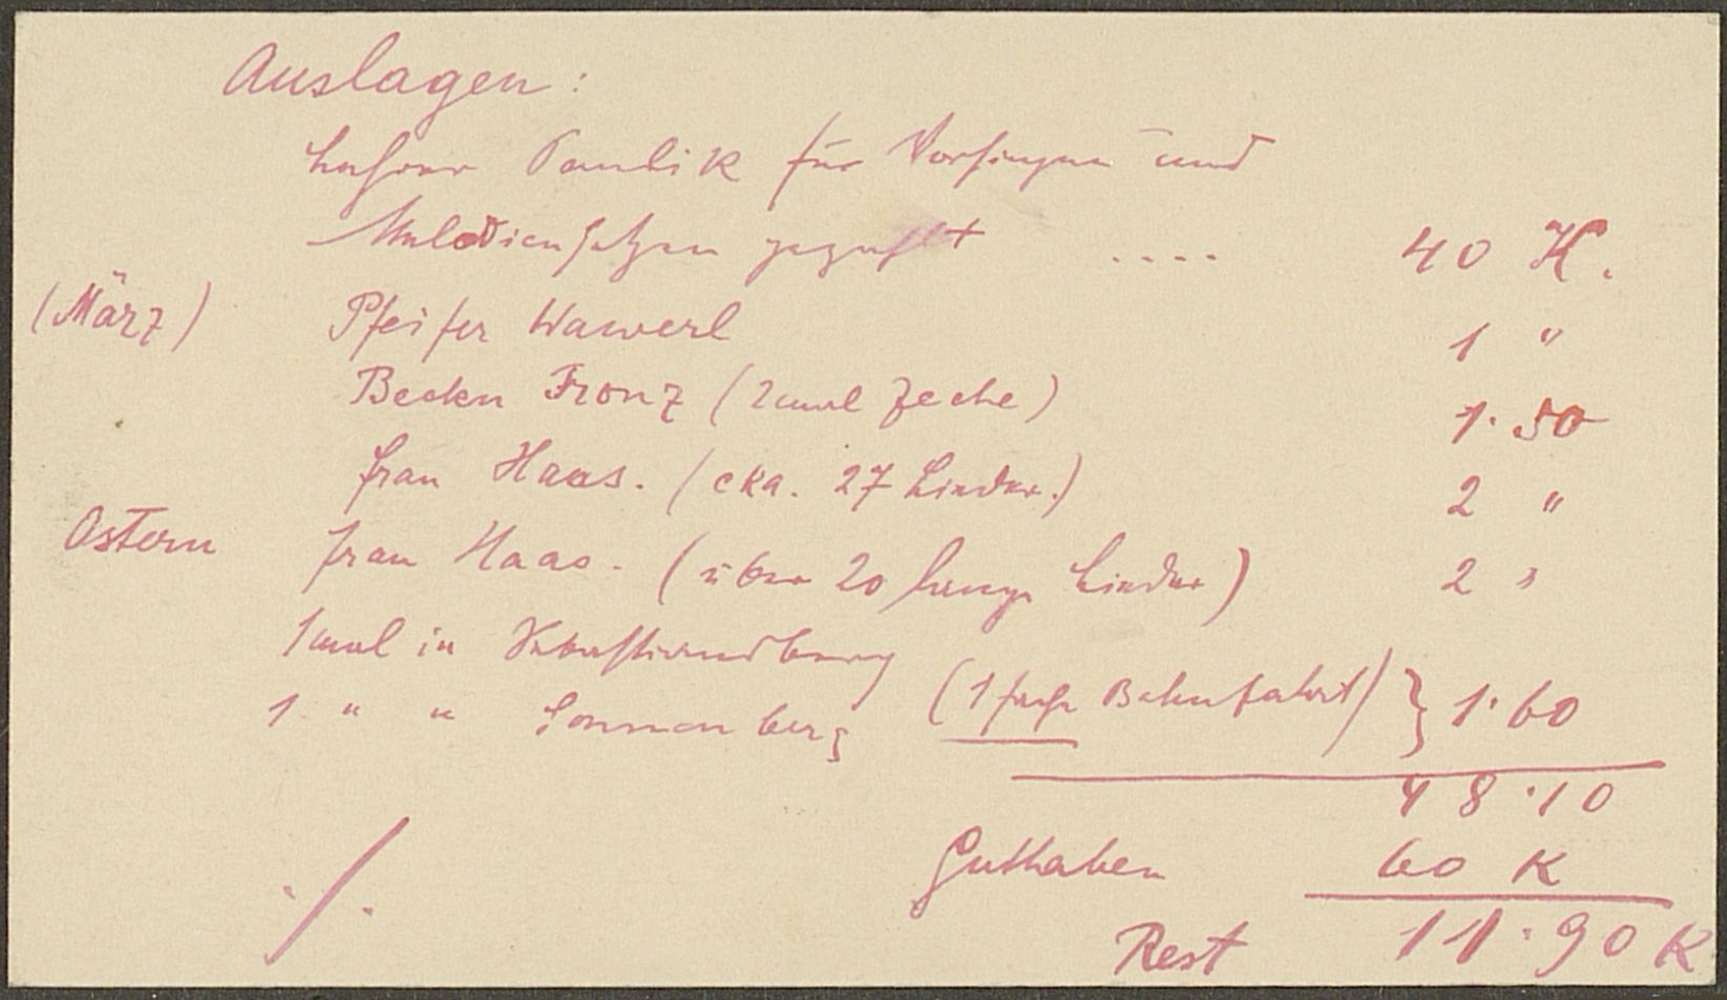 Auslagen:
Lehrer Pandik für Vorsingen und
Melodiensetzen gezahlt .... 40 K.
(März) Pfeifer Wawerl 1 "
Becken Fronz (2mal Zeche) 1·50
Frau Haas. (cka. 27 Lieder.) 2 "
Ostern Frau Haas. (über 20 lange Lieder) 2 "
1mal in Sebastiansberg
1 " " Sonnenberg (1 fache Bahnfahrt) } 1·60
48·10
Guthaben 60 K
Rest 11·90 K
./.